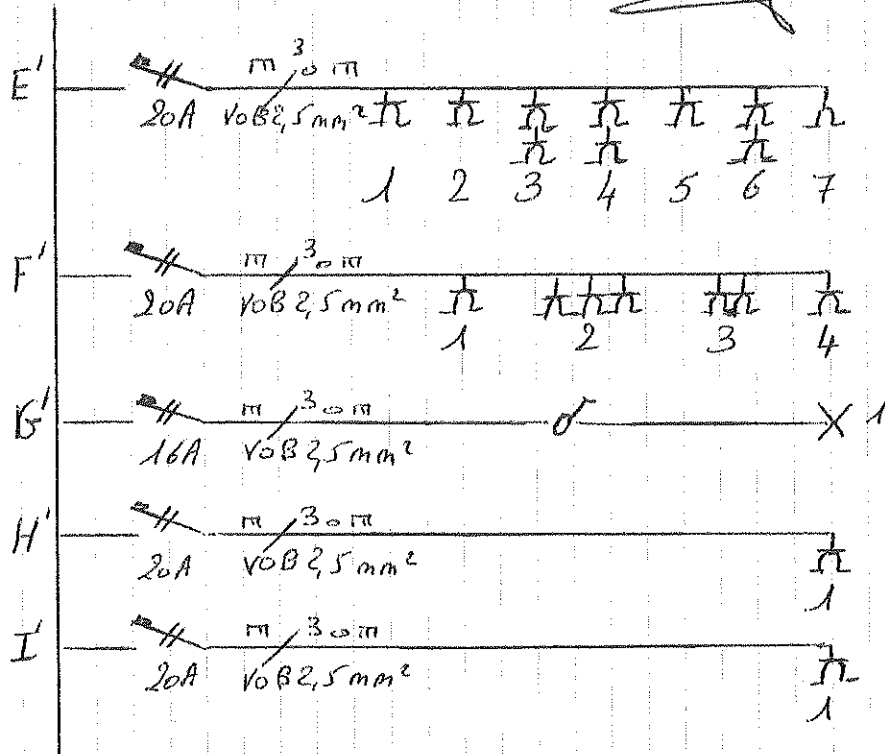 E'
3
20A VOB 2,5 mm²
1 2 3 4 5 6 7
F'
3
20A VOB 2,5 mm²
1 2 3 4
G'
3
1
16A VOB 2,5 mm²
H'
3
20A VOB 2,5 mm²
1
I'
3
20A VOB 2,5 mm²
1